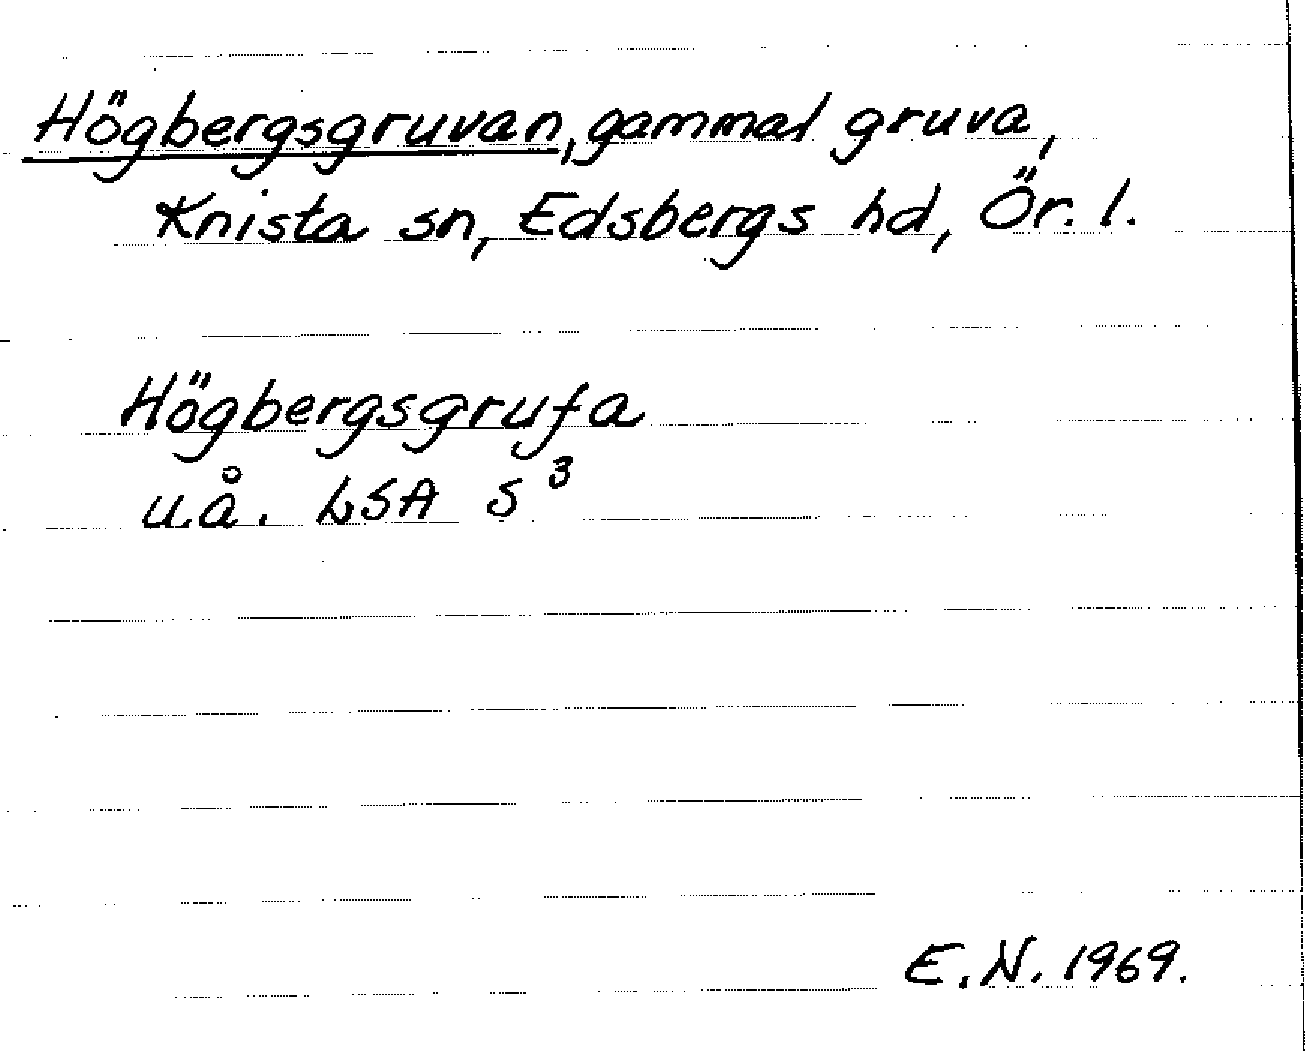 Högbergsgruvan, gammal gruva,
Knista sn, Edsbergs hd, Ör. l.
Högbergsgrufa
u.å. LSA S³
E.N. 1969.